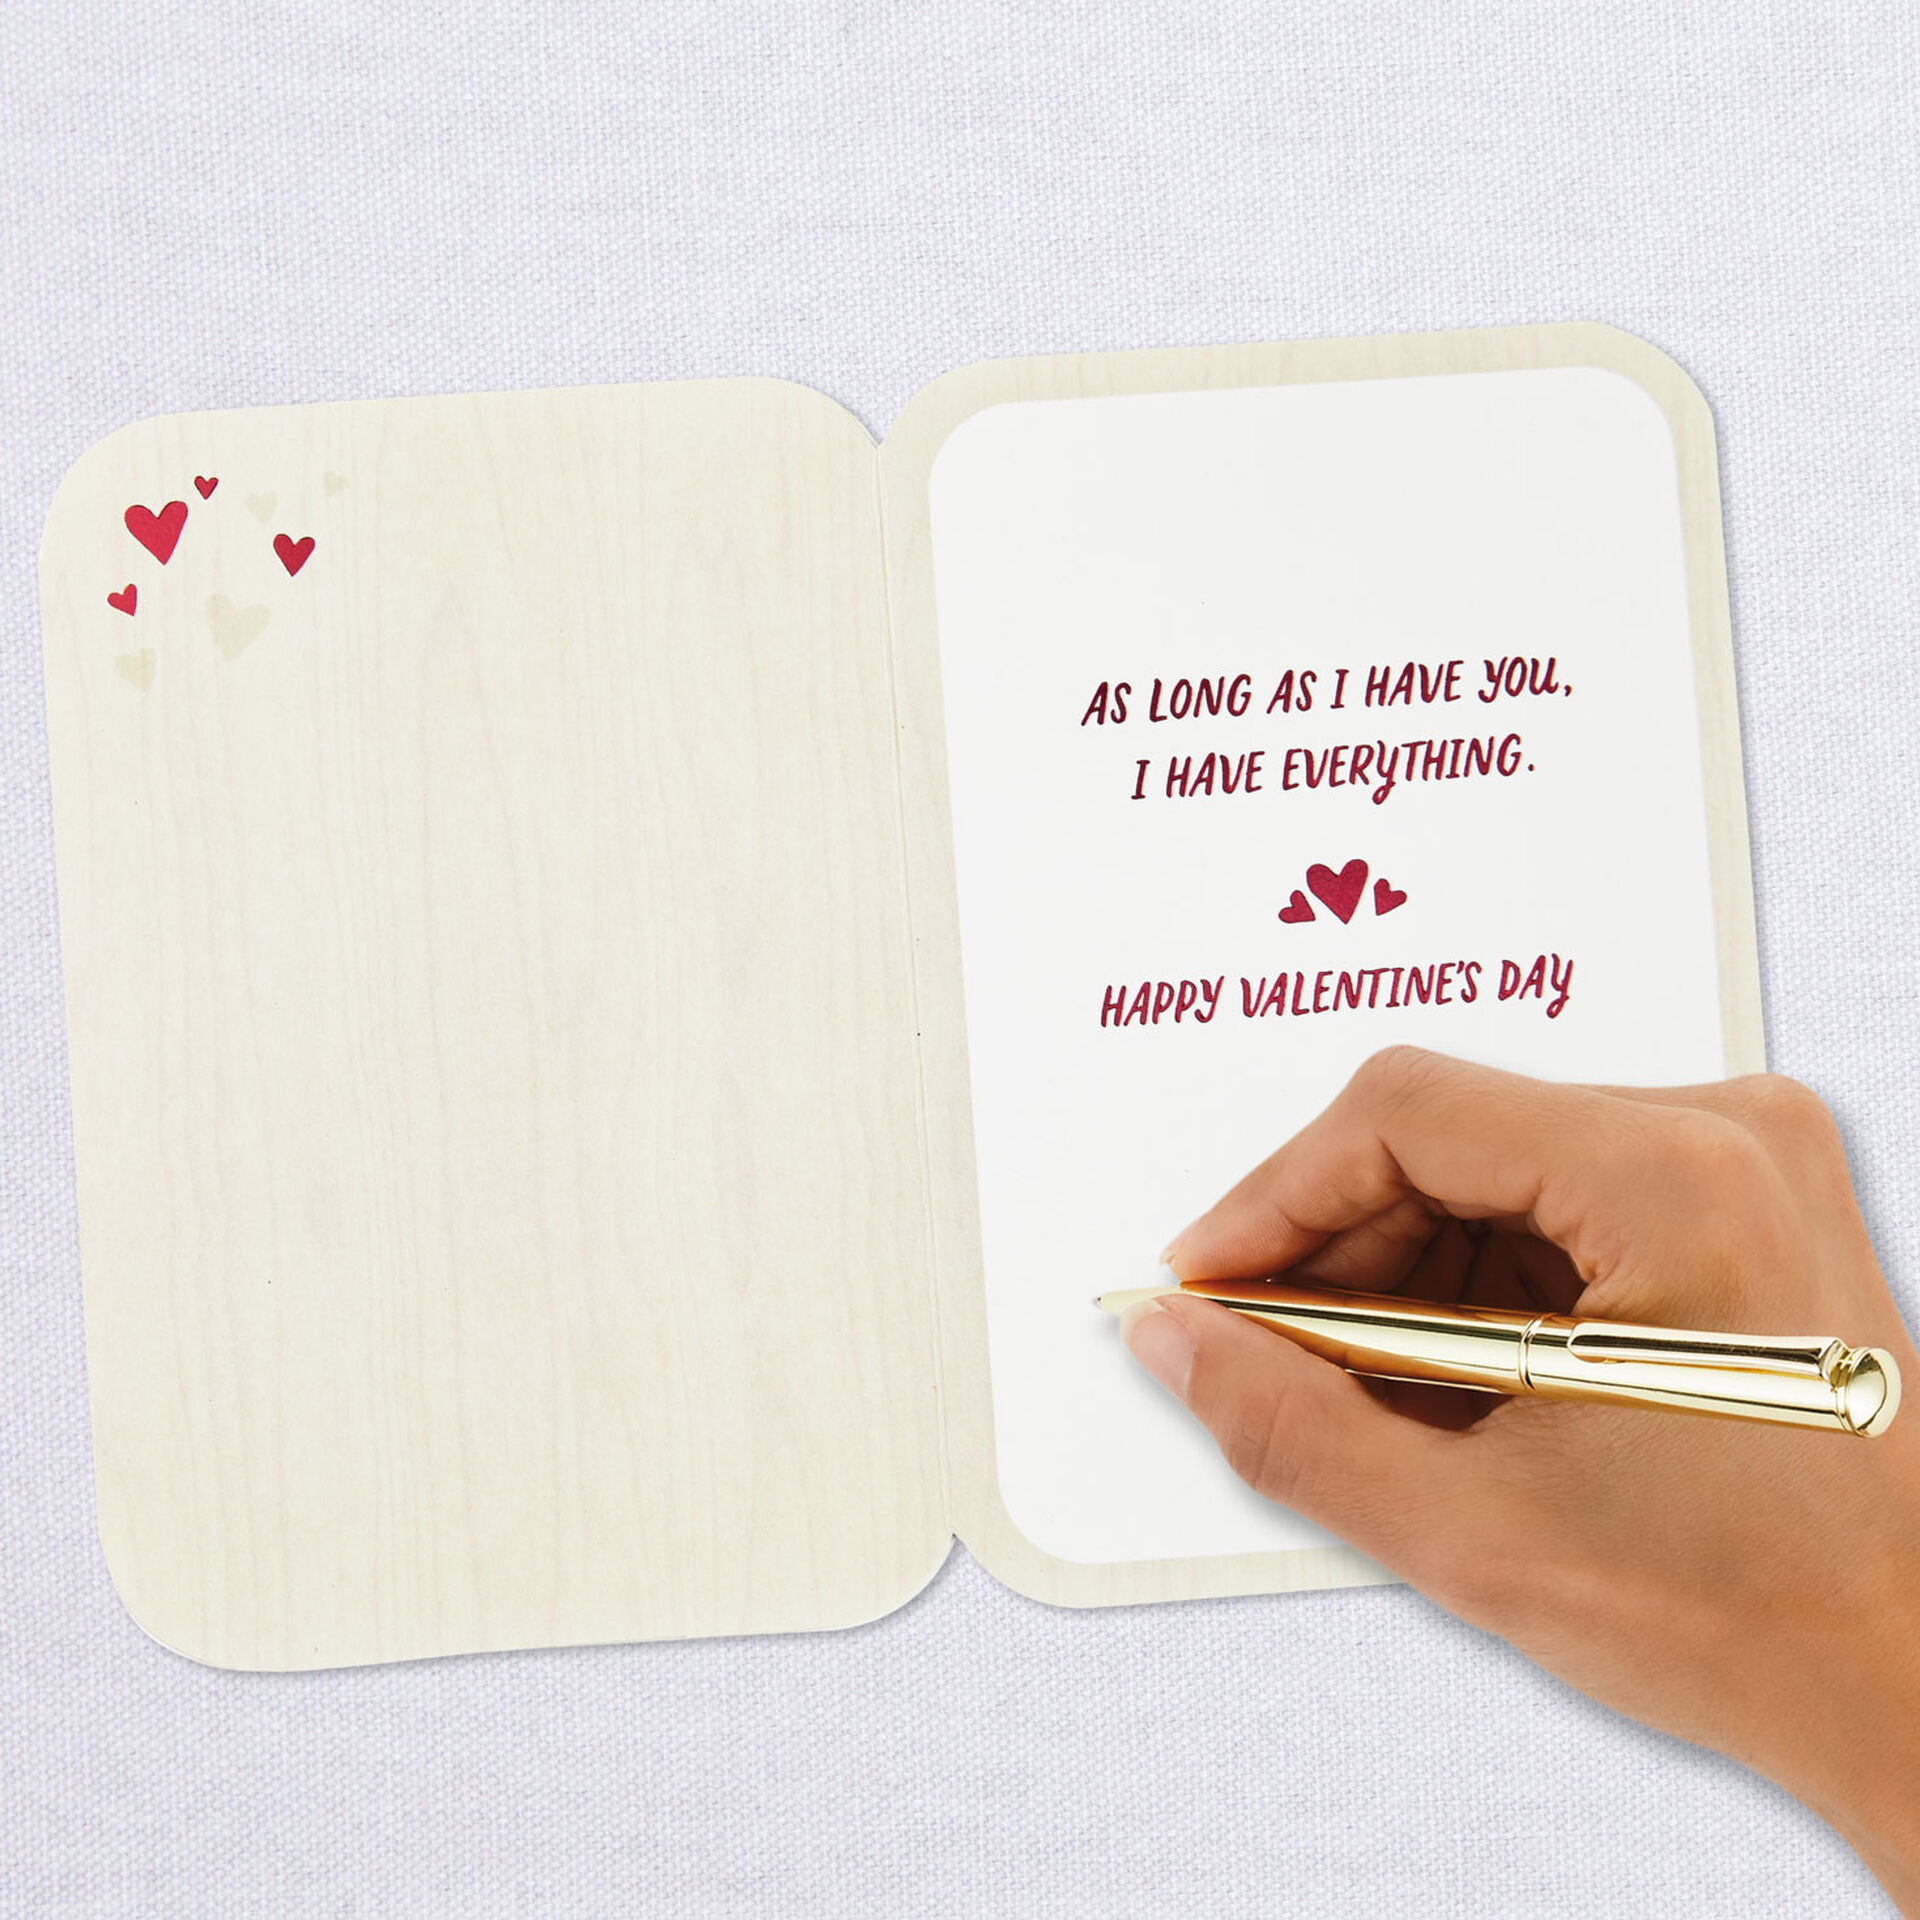 AS LONG AS I HAVE YOU,
I HAVE EVERYTHING.
HAPPY VALENTINE'S DAY